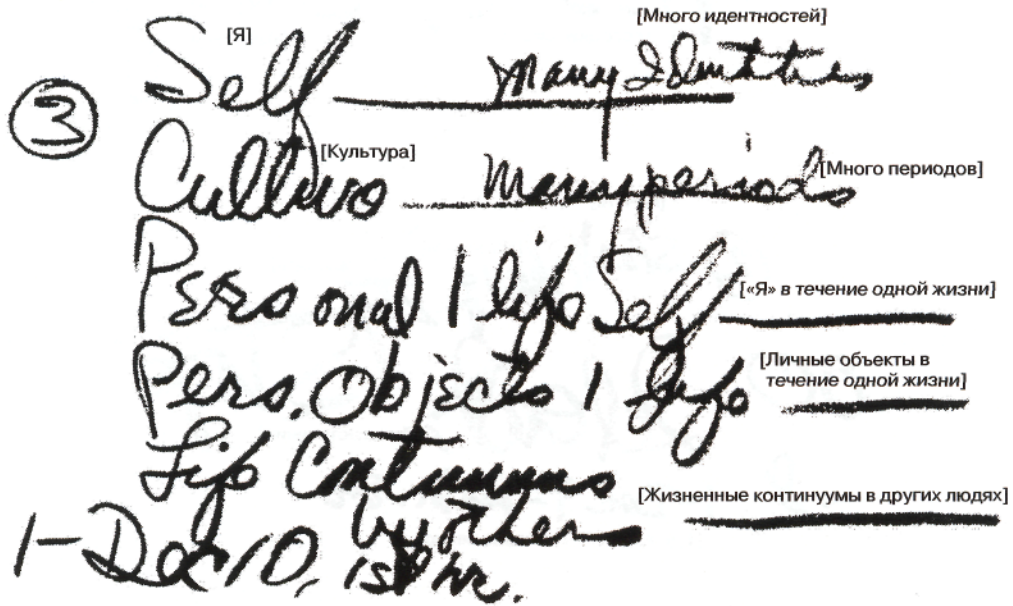 [Много идентностей]
Self [Я] many Identities
③
Culture [Культура] many periods [Много периодов]
Personal 1 life Self [«Я» в течение одной жизни]
Pers. Objects 1 life [Личные объекты в
течение одной жизни]
Life Continuums
by others [Жизненные континуумы в других людях]
1-Dec 10, 1st hr.